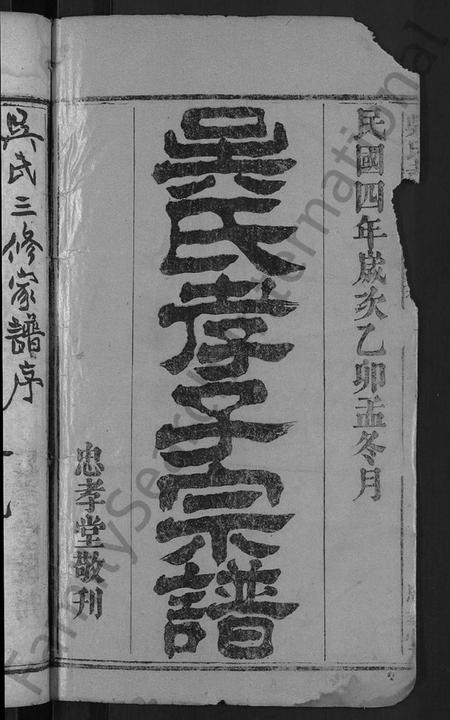 民國四年歲次乙卯孟冬月
吳氏孝子宗譜
忠孝堂敬刊
吳氏三修家譜序
FamilySearch International